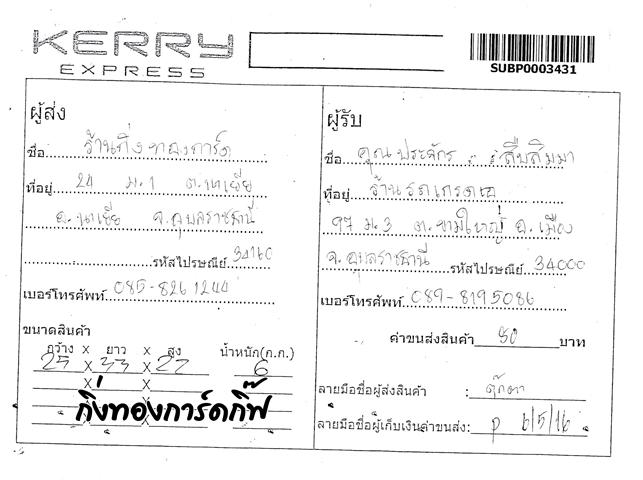 KERRY
EXPRESS
SUBP0003431
ผู้ส่ง
ชื่อ ร้านกิ่งทองการ์ด
ที่อยู่ 24 ม.1 ต.นาเยีย
อ.นาเยีย จ.อุบลราชธานี
รหัสไปรษณีย์ 34160
เบอร์โทรศัพท์ 085-8261244
ขนาดสินค้า
กว้าง x ยาว x สูง น้ำหนัก(ก.ก.)
25 x 33 x 27 6
x x
x x
กิ่งทองการ์ดกิ๊ฟ
ผู้รับ
ชื่อ คุณ ประจักร สืบสิมมา
ที่อยู่ ร้านรถเกรดเอ
97 ม.3 ต.ขามใหญ่ อ.เมือง
จ.อุบลราชธานี รหัสไปรษณีย์ 34000
เบอร์โทรศัพท์ 089-8195086
ค่าขนส่งสินค้า 80 บาท
ลายมือชื่อผู้ส่งสินค้า : ตุ๊กตา
ลายมือชื่อผู้เก็บเงินค่าขนส่ง: P 6/5/16